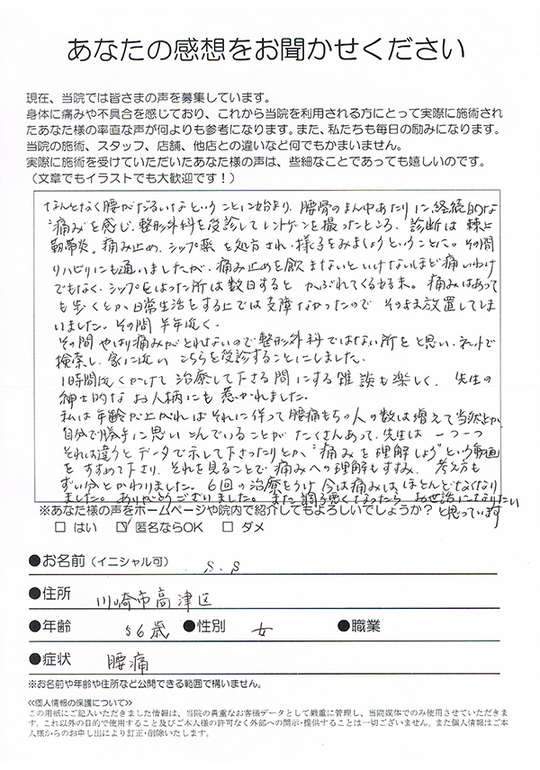 あなたの感想をお聞かせください
現在、当院では皆さまの声を募集しています。
身体に痛みや不具合を感じており、これから当院を利用される方にとって実際に施術され
たあなた様の率直な声が何よりも参考になります。また、私たちも毎日の励みになります。
当院の施術、スタッフ、店舗、他店との違いなど何でもかまいません。
実際に施術を受けていただいたあなた様の声は、些細なことであっても嬉しいのです。
（文章でもイラストでも大歓迎です！）
なんとなく腰がだるいなということに始まり、腰骨のまん中あたりに、経続的な
"痛み"を感じ、整形外科を受診してレントゲンを撮ったところ、診断は棘上
靭帯炎。痛み止め、シップ薬を処方され、様子をみましょうということに。その間
リハビリにも通いましたが、痛み止めを飲まないといけないほど痛いわけ
でもなく、シップをはった所は数日すると かぶれてくる始末。痛みはあって
も歩くとか、日常生活をする上では支障なかったので そのまま放置してしま
いました。その間 半年近く。
その間やはり痛みがとれないので整形外科ではない所をと思い、ネットで
検索し、家に近い こちらを受診することにしました。
1時間近くかけて 治療して下さる間にする雑談も楽しく、先生の
紳士的な お人柄にも 惹かれました。
私は年齢が上がれば それに伴って腰痛もちの人の数は増えて当然とか、
自分で勝手に思いこんでいることが たくさんあって、先生は 一つ一つ
それは違うと データで示して下さったりとか "痛みを理解しよう"という動画
をすすめて下さり、それを見ることで痛みへの理解もすすみ、考え方も
ずい分とかわりました。6回の治療をうけ 今は痛みは、ほとんどなくなり
ました。ありがとうございました。また調子悪くなったら お世話になりたい
と思っています
※あなた様の声をホームページや院内で紹介してもよろしいでしょうか？
□ はい ☑ 匿名ならOK □ ダメ
●お名前（イニシャル可） S.S
●住所 川崎市高津区
●年齢 56歳 ●性別 女 ●職業
●症状 腰痛
※お名前や年齢や住所など公開できる範囲で構いません。
≪個人情報の保護について≫
この用紙にご記入いただきました情報は、当院の貴重なお客様データとして厳重に管理し、当院媒体でのみ使用させていただきま
す。これ以外の目的で使用すること及びご本人様の許可なく外部への開示・提供することは一切ございません。また個人情報はご本
人様からのお申し出により訂正・削除いたします。